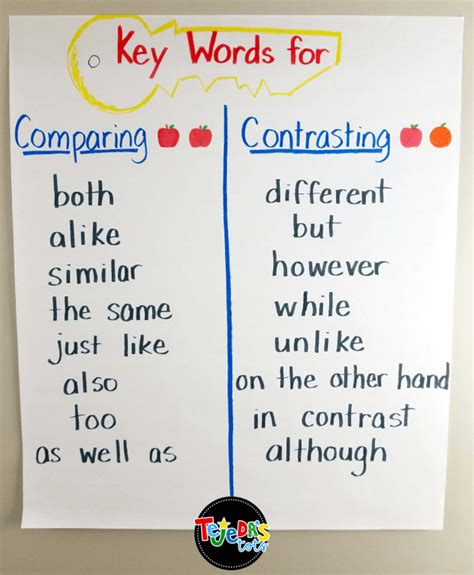 Key Words for
Comparing
both
alike
similar
the same
just like
also
too
as well as
Contrasting
different
but
however
while
unlike
on the other hand
in contrast
although
TEJEDA'S
tots